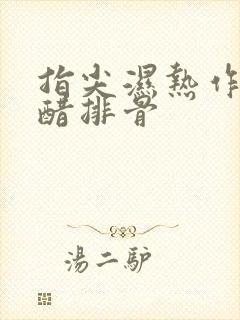 指尖濕熱作
醋排骨
湯二驴